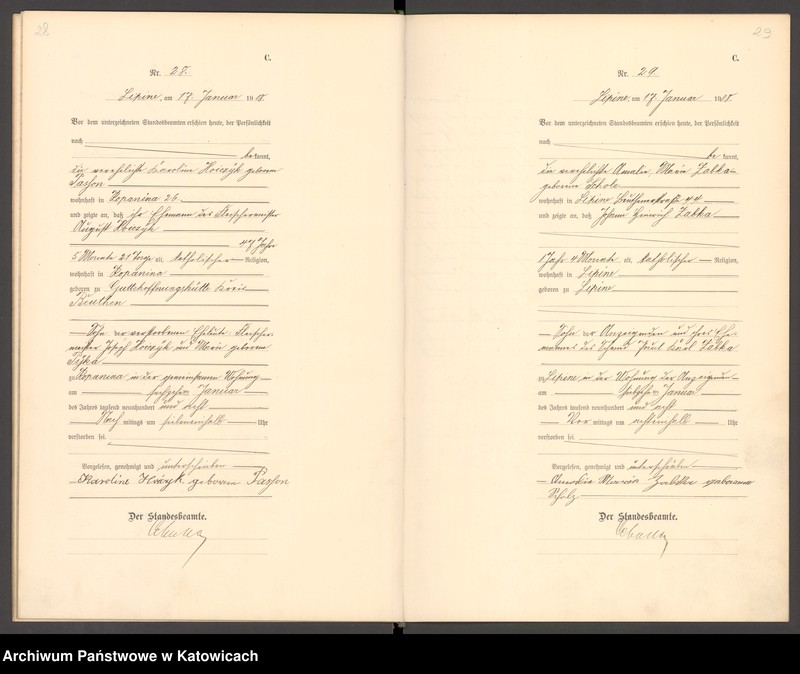 28
C.
Nr. 28.
Lipine, am 17. Januar 1908.
Vor dem unterzeichneten Standesbeamten erschien heute, der Persönlichkeit
nach
be kannt,
die verehelichte Karoline geborene
Passon
wohnhaft in Kopanina 26
und zeigte an, daß ihr Ehemann der Fleischermeister
August
47 Jahre
5 Monate 21 Tage alt, katholischer Religion,
wohnhaft in Kopanina
geboren zu Gutehoffnungshütte Kreis
Beuthen
Sohn der verstorbenen Eheleute Fleischer-
meister Joseph und Marie geborene
zu Kopanina in der gemeinsamen Wohnung
am sechzehnten Januar
des Jahres tausend neunhundert und acht
Nach mittags um siebeneinhalb Uhr
verstorben sei.
Vorgelesen, genehmigt und unterschrieben
Karoline geborene Passon
Der Standesbeamte.
29
C.
Nr. 29.
Lipine, am 17. Januar 1908.
Vor dem unterzeichneten Standesbeamten erschien heute, der Persönlichkeit
nach
be kannt,
die verehelichte Amalie Marie Zabka
geborene Scholz
wohnhaft in Lipine Beuthenerstraße 44
und zeigte an, daß Johann Heinrich Zabka
1 Jahr 4 Monate alt, katholischer Religion,
wohnhaft in Lipine
geboren zu Lipine
Sohn der Anzeigenden und ihres Ehe-
mannes des Paul Karl Zabka
zu Lipine in der Wohnung der Anzeigenden
am siebzehnten Januar
des Jahres tausend neunhundert und acht
Vor mittags um achteinhalb Uhr
verstorben sei.
Vorgelesen, genehmigt und unterschrieben
Amalie Maria Zabka geborene
Scholz
Der Standesbeamte.
Archiwum Państwowe w Katowicach